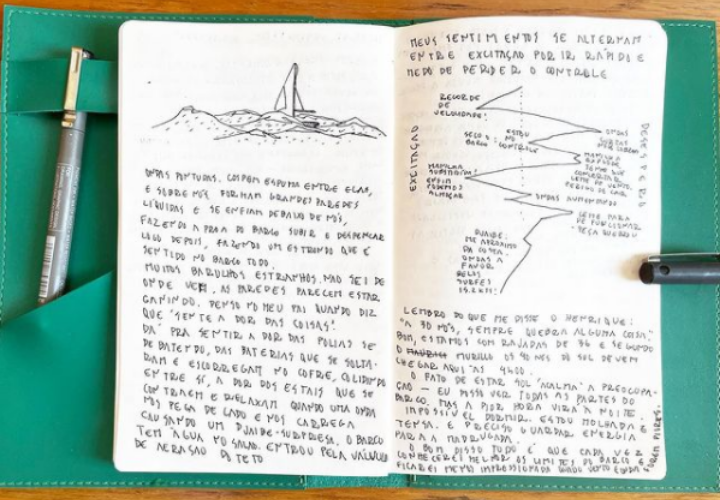 ONDAS PONTUDAS. COSPEM ESPUMA ENTRE ELAS,
E SOBRE NÓS. FORMAM GRANDES PAREDES
LÍQUIDAS E SE ENFIAM DEBAIXO DE NÓS,
FAZENDO A PROA DO BARCO SUBIR E DESPENCAR
LOGO DEPOIS, FAZENDO UM ESTRONDO QUE É
SENTIDO NO BARCO TODO.
MUITOS BARULHOS ESTRANHOS. NÃO SEI DE
ONDE VEM, AS PAREDES PARECEM ESTAR
GANINDO. PENSO NO MEU PAI QUANDO DIZ
QUE "SENTE A DOR DAS COISAS".
DÁ PRA SENTIR A DOR DAS POLIAS SE
DEBATENDO, DAS BATERIAS QUE SE SOLTA-
RAM E ESCORREGAM NO COFRE, COLIDINDO
ENTRE SI, A DOR DOS ESTAIS QUE SE
CONTRAEM E RELAXAM QUANDO UMA ONDA
NOS PEGA DE LADO E NOS CARREGA
CAUSANDO UM DJAIBE-SURPRESA. O BARCO
TEM ÁGUA NO SALÃO. ENTROU PELA VÁLVULA
DE AERAÇÃO DO TETO
MEUS SENTIMENTOS SE ALTERNAM
ENTRE EXCITAÇÃO POR IR RÁPIDO E
MEDO DE PERDER O CONTROLE
EXCITAÇÃO
RECORDE
DE
VELOCIDADE!
ESTOU
NO
CONTROLE
BARCO
ONDAS
MANILHA
SUBSTITUÍDA!
ENFIM
PODEMOS
ALMOÇAR
ONDAS AUMENTANDO
LEME PARA
DE FUNCIONAR
PEÇA QUEBROU
DJAIBE:
ME APROXIMO
DA COSTA.
ONDAS A
FAVOR
BELAS
SURFES
DESESPERO
LEMBRO DO QUE ME DISSE O HENRIQUE:
"A 30 NÓS, SEMPRE QUEBRA ALGUMA COISA".
BOM, ESTAMOS COM RAJADAS DE 36 E SEGUNDO
O MURILLO OS 40 NÓS DO SUL DEVEM
CHEGAR AQUI ÀS 4H00.
O FATO DE ESTAR SOL "ACALMA" A PREOCUPA-
ÇÃO – EU POSSO VER TODAS AS PARTES DO
BARCO. MAS A PIOR HORA VIRÁ À NOITE.
IMPOSSÍVEL DORMIR. ESTOU MOLHADA E
TENSA. E PRECISO GUARDAR ENERGIA
PARA A MADRUGADA.
O BOM DISSO TUDO É QUE CADA VEZ
CONHECEREI MELHOR OS LIMITES DO BARCO E
FICAREI MENOS IMPRESSIONADA QUANDO
FOREM PIORES.